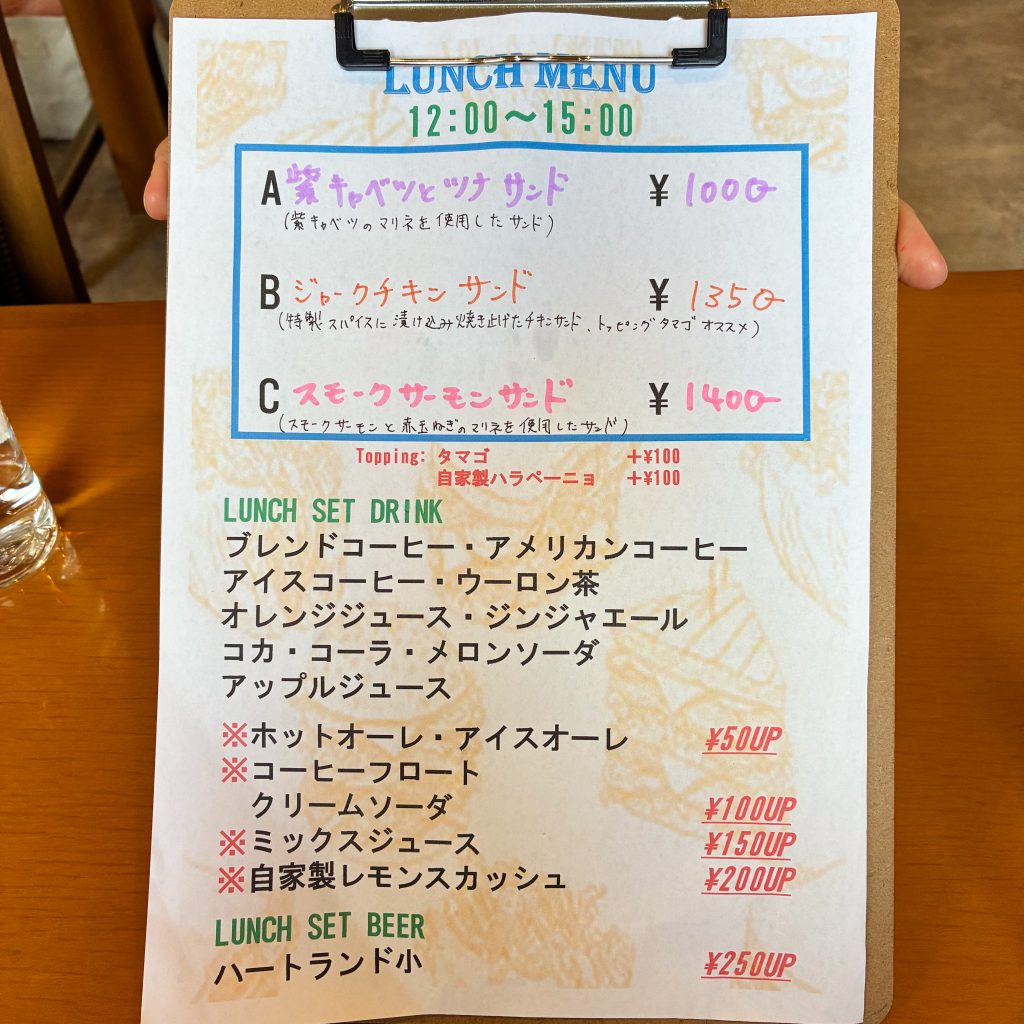 LUNCH MENU
12:00〜15:00
A 紫キャベツとツナ サンド ¥ 1000
(紫キャベツのマリネを使用したサンド)
B ジャークチキン サンド ¥ 1350
(特製スパイスに漬け込み焼き上げたチキンサンド、トッピングタマゴオススメ)
C スモークサーモンサンド ¥ 1400
(スモークサーモンと赤玉ねぎのマリネを使用したサンド)
Topping: タマゴ +¥100
自家製ハラペーニョ +¥100
LUNCH SET DRINK
ブレンドコーヒー・アメリカンコーヒー
アイスコーヒー・ウーロン茶
オレンジジュース・ジンジャエール
コカ・コーラ・メロンソーダ
アップルジュース
※ホットオーレ・アイスオーレ ¥50UP
※コーヒーフロート
クリームソーダ ¥100UP
※ミックスジュース ¥150UP
※自家製レモンスカッシュ ¥200UP
LUNCH SET BEER
ハートランド小 ¥250UP